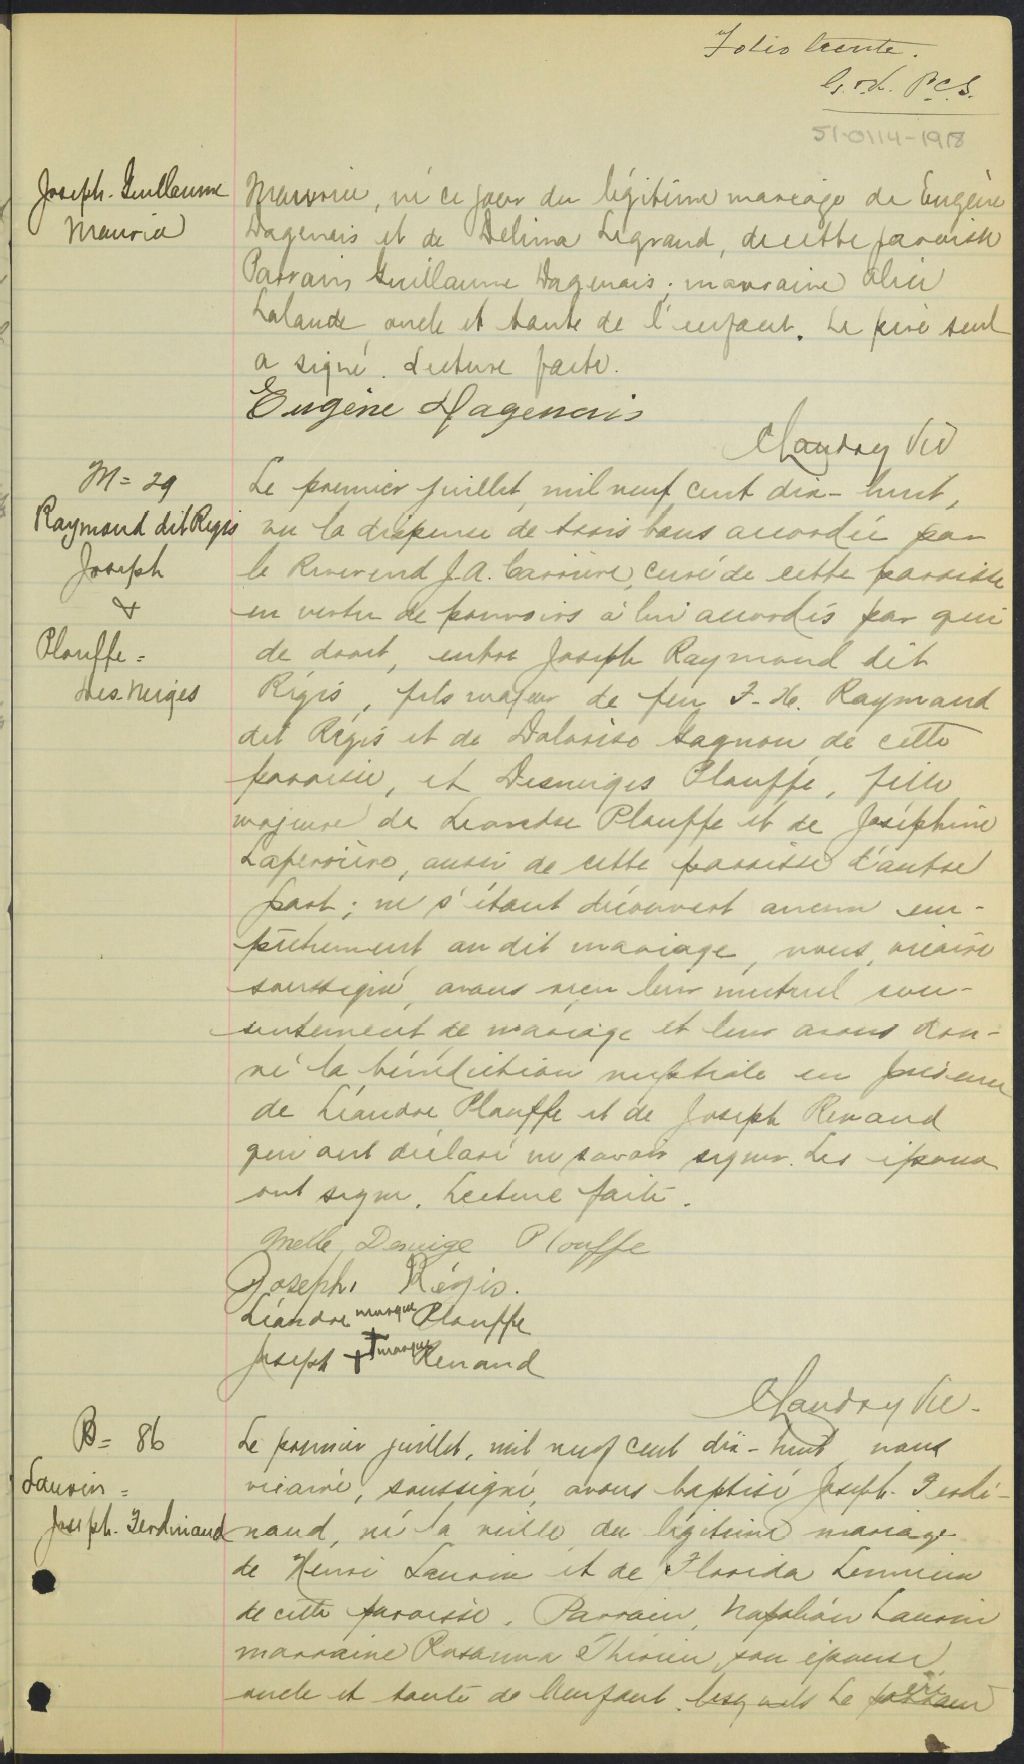 Folio trente.
P.C.S.
51-0114-1918
Joseph-Guillaume
Mauric
Mauric, né ce jour du légitime mariage de Eugène
Dagenais et de Delima Legrand, de cette paroisse
Parrain Guillaume Dagenais; marraine Alice
Lalande, oncle et tante de l'enfant. Le père seul
a signé. Lecture faite.
Eugène Dagenais
Vic
M = 29
Raymond dit Regis
Joseph
&
Plouffe =
Des-Neiges
Le premier juillet, mil neuf cent dix-huit,
vu la dispense de trois bans accordée par
le Reverend J.A. Carrière, curé de cette paroisse
en vertu de pouvoirs à lui accordés par qui
de droit, entre Joseph Raymond dit
Régis, fils majeur de feu F-X. Raymond
dit Régis et de Gagnon de cette
paroisse, et Desneiges Plouffe, fille
majeure de Leandre Plouffe et de Joséphine
Laperrière, aussi de cette paroisse d'autre
part; ne s'étant découvert aucun em-
pêchement au dit mariage, nous, vicaire
soussigné, avons reçu leur mutuel con-
sentement de mariage et leur avons don-
né la bénédiction nuptiale en présence
de Léandre Plouffe et de Joseph Renaud
qui ont déclaré ne savoir signer. Les époux
ont signé. Lecture faite.
Melle Deneige Plouffe
Joseph Régis.
Léandre marque Plouffe
Joseph + marque Renaud
Vic.
B = 86
Laurin =
Joseph-Ferdinand
Le premier juillet, mil neuf cent dix-huit, nous
vicaire, soussigné, avons baptisé Joseph-Ferdi-
nand, né la veille du légitime mariage
de Henri Laurin et de Florida Lemieux
de cette paroisse. Parrain, Napoléon Laurin
marraine Rosanna Thérien, son épouse
oncle et tante de l'enfant lesquels Le père